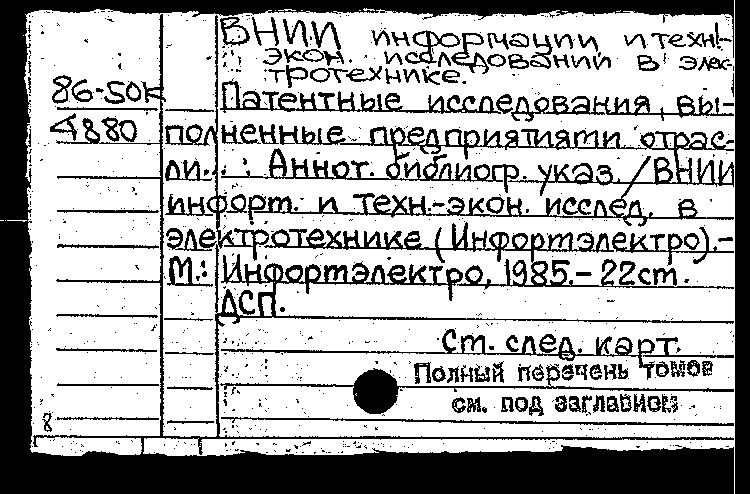 ВНИИ информации и техн.-
экон. исследований в элек-
тротехнике.
86-50К Патентные исследования, вы-
4880 полненные предприятиями отрас-
ли... : Аннот. библиогр. указ. / ВНИИ
информ. и техн.-экон. исслед. в
электротехнике (Информэлектро).-
М.: Информэлектро, 1985.- 22см.
ДСП.
См. след. карт.
Полный перечень томов
см. под заглавием
8